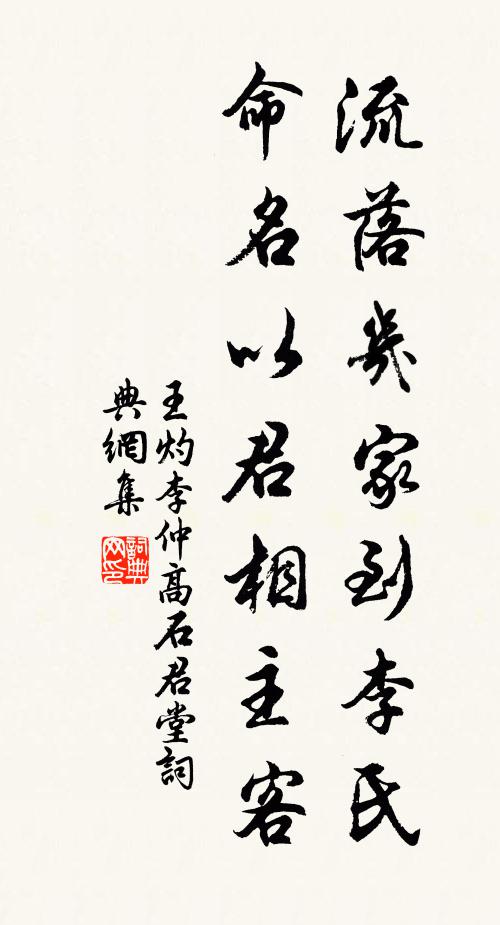 流落幾家到李氏
命名以君相主客
王灼李仲高石君堂詞
典網集
詞典網印